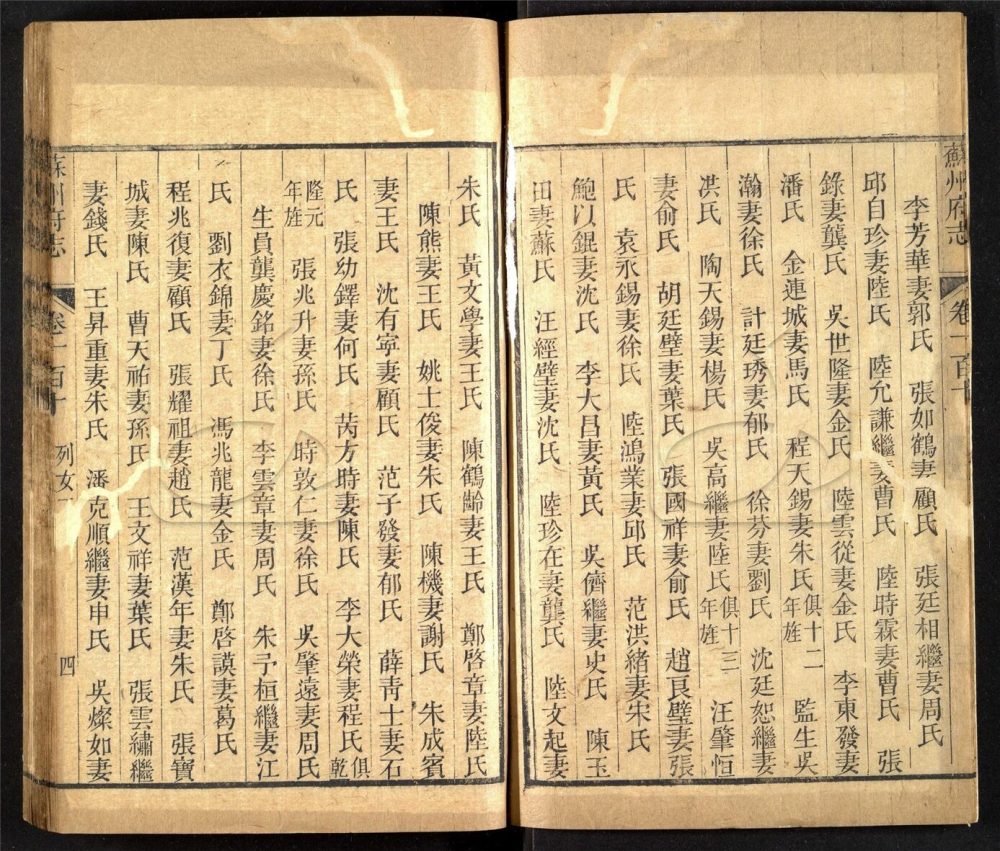 蘇州府志
卷一百十
李芳華妻郭氏　張如鶴妻顧氏　張廷相繼妻周氏
邱自珍妻陸氏　陸允謙繼妻曹氏　陸時霖妻曹氏　張
錄妻龔氏　吳世隆妻金氏　陸雲從妻金氏　李東發妻
潘氏　金連城妻馬氏　程天錫妻朱氏俱十二年旌　監生吳
瀚妻徐氏　計廷琇妻郁氏　徐芬妻劉氏　沈廷恕繼妻
洪氏　陶天錫妻楊氏　吳高繼妻陸氏俱十三年旌　汪肇恒
妻俞氏　胡廷璧妻葉氏　張國祥妻俞氏　趙良璧妻張
氏　袁永錫妻徐氏　陸鴻業妻邱氏　范洪緒妻宋氏
鮑以錕妻沈氏　李大昌妻黃氏　吳儕繼妻史氏　陳玉
田妻蘇氏　汪經璧妻沈氏　陸珍在妻龔氏　陸文起妻
朱氏　黃文學妻王氏　陳鶴齡妻王氏　鄭啓章妻陸氏
陳熊妻王氏　姚士俊妻朱氏　陳機妻謝氏　朱成賓
妻王氏　沈有寧妻顧氏　范子發妻郁氏　薛靑士妻石
氏　張幼鐸妻何氏　芮方時妻陳氏　李大榮妻程氏俱乾
隆元年旌　張兆升妻孫氏　時敦仁妻徐氏　吳肇遠妻周氏
生員龔慶銘妻徐氏　李雲章妻周氏　朱予桓繼妻江
氏　劉衣錦妻丁氏　馮兆龍妻金氏　鄭啓謨妻葛氏
程兆復妻顧氏　張耀祖妻趙氏　范漢年妻朱氏　張寶
城妻陳氏　曹天祐妻孫氏　王文祥妻葉氏　張雲繡繼
妻錢氏　王昇重妻朱氏　潘克順繼妻申氏　吳燦如妻
蘇州府志　卷一百十　列女　四